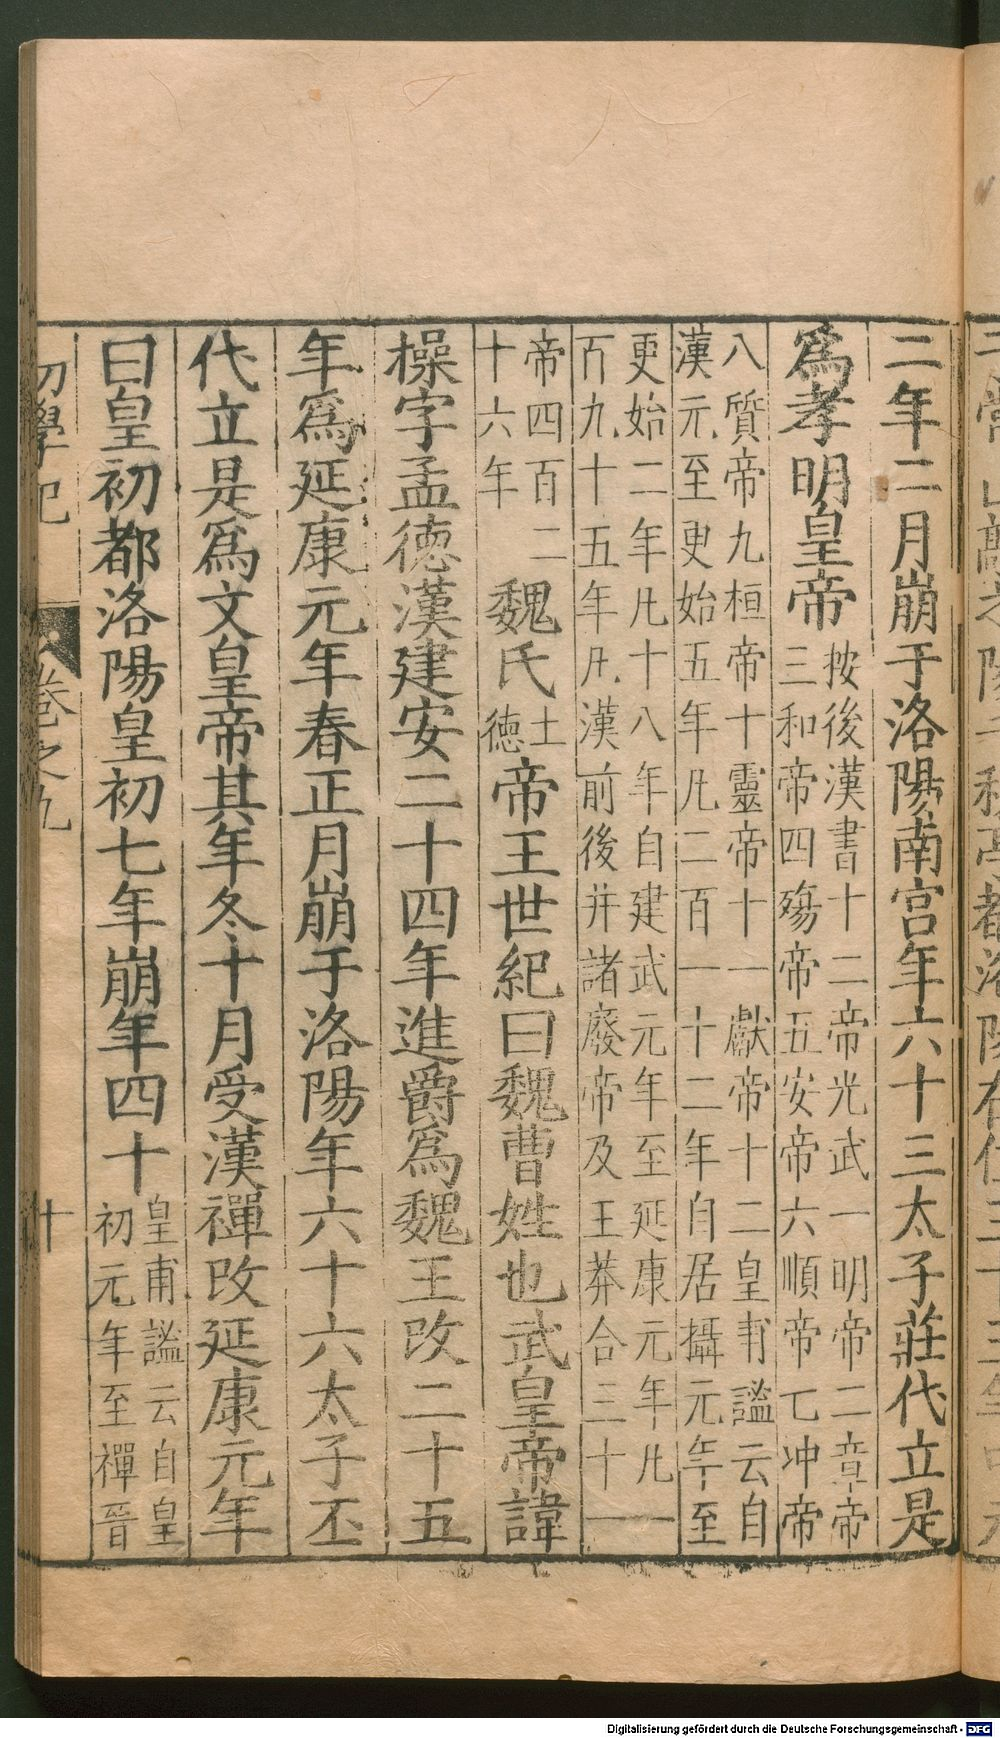 二年二月崩于洛陽南宮年六十三太子莊代立是
爲孝明皇帝
按後漢書十二帝光武一明帝二章帝
三和帝四殤帝五安帝六順帝七冲帝
八質帝九桓帝十靈帝十一獻帝十二皇甫謐云自
漢元至更始五年凢二百一十二年自居攝元年至
更始二年凢十八年自建武元年至延康元年凢一
百九十五年凢漢前後并諸廢帝及王莽合三十一
帝四百二
十六年
魏氏
土
德
帝王世紀曰魏曹姓也武皇帝諱
操字孟德漢建安二十四年進爵爲魏王改二十五
年爲延康元年春正月崩于洛陽年六十六太子丕
代立是爲文皇帝其年冬十月受漢禪改延康元年
曰皇初都洛陽皇初七年崩年四十
皇甫謐云自皇
初元年至禪晉
初學記
卷之九
十
Digitalisierung gefördert durch die Deutsche Forschungsgemeinschaft - DFG